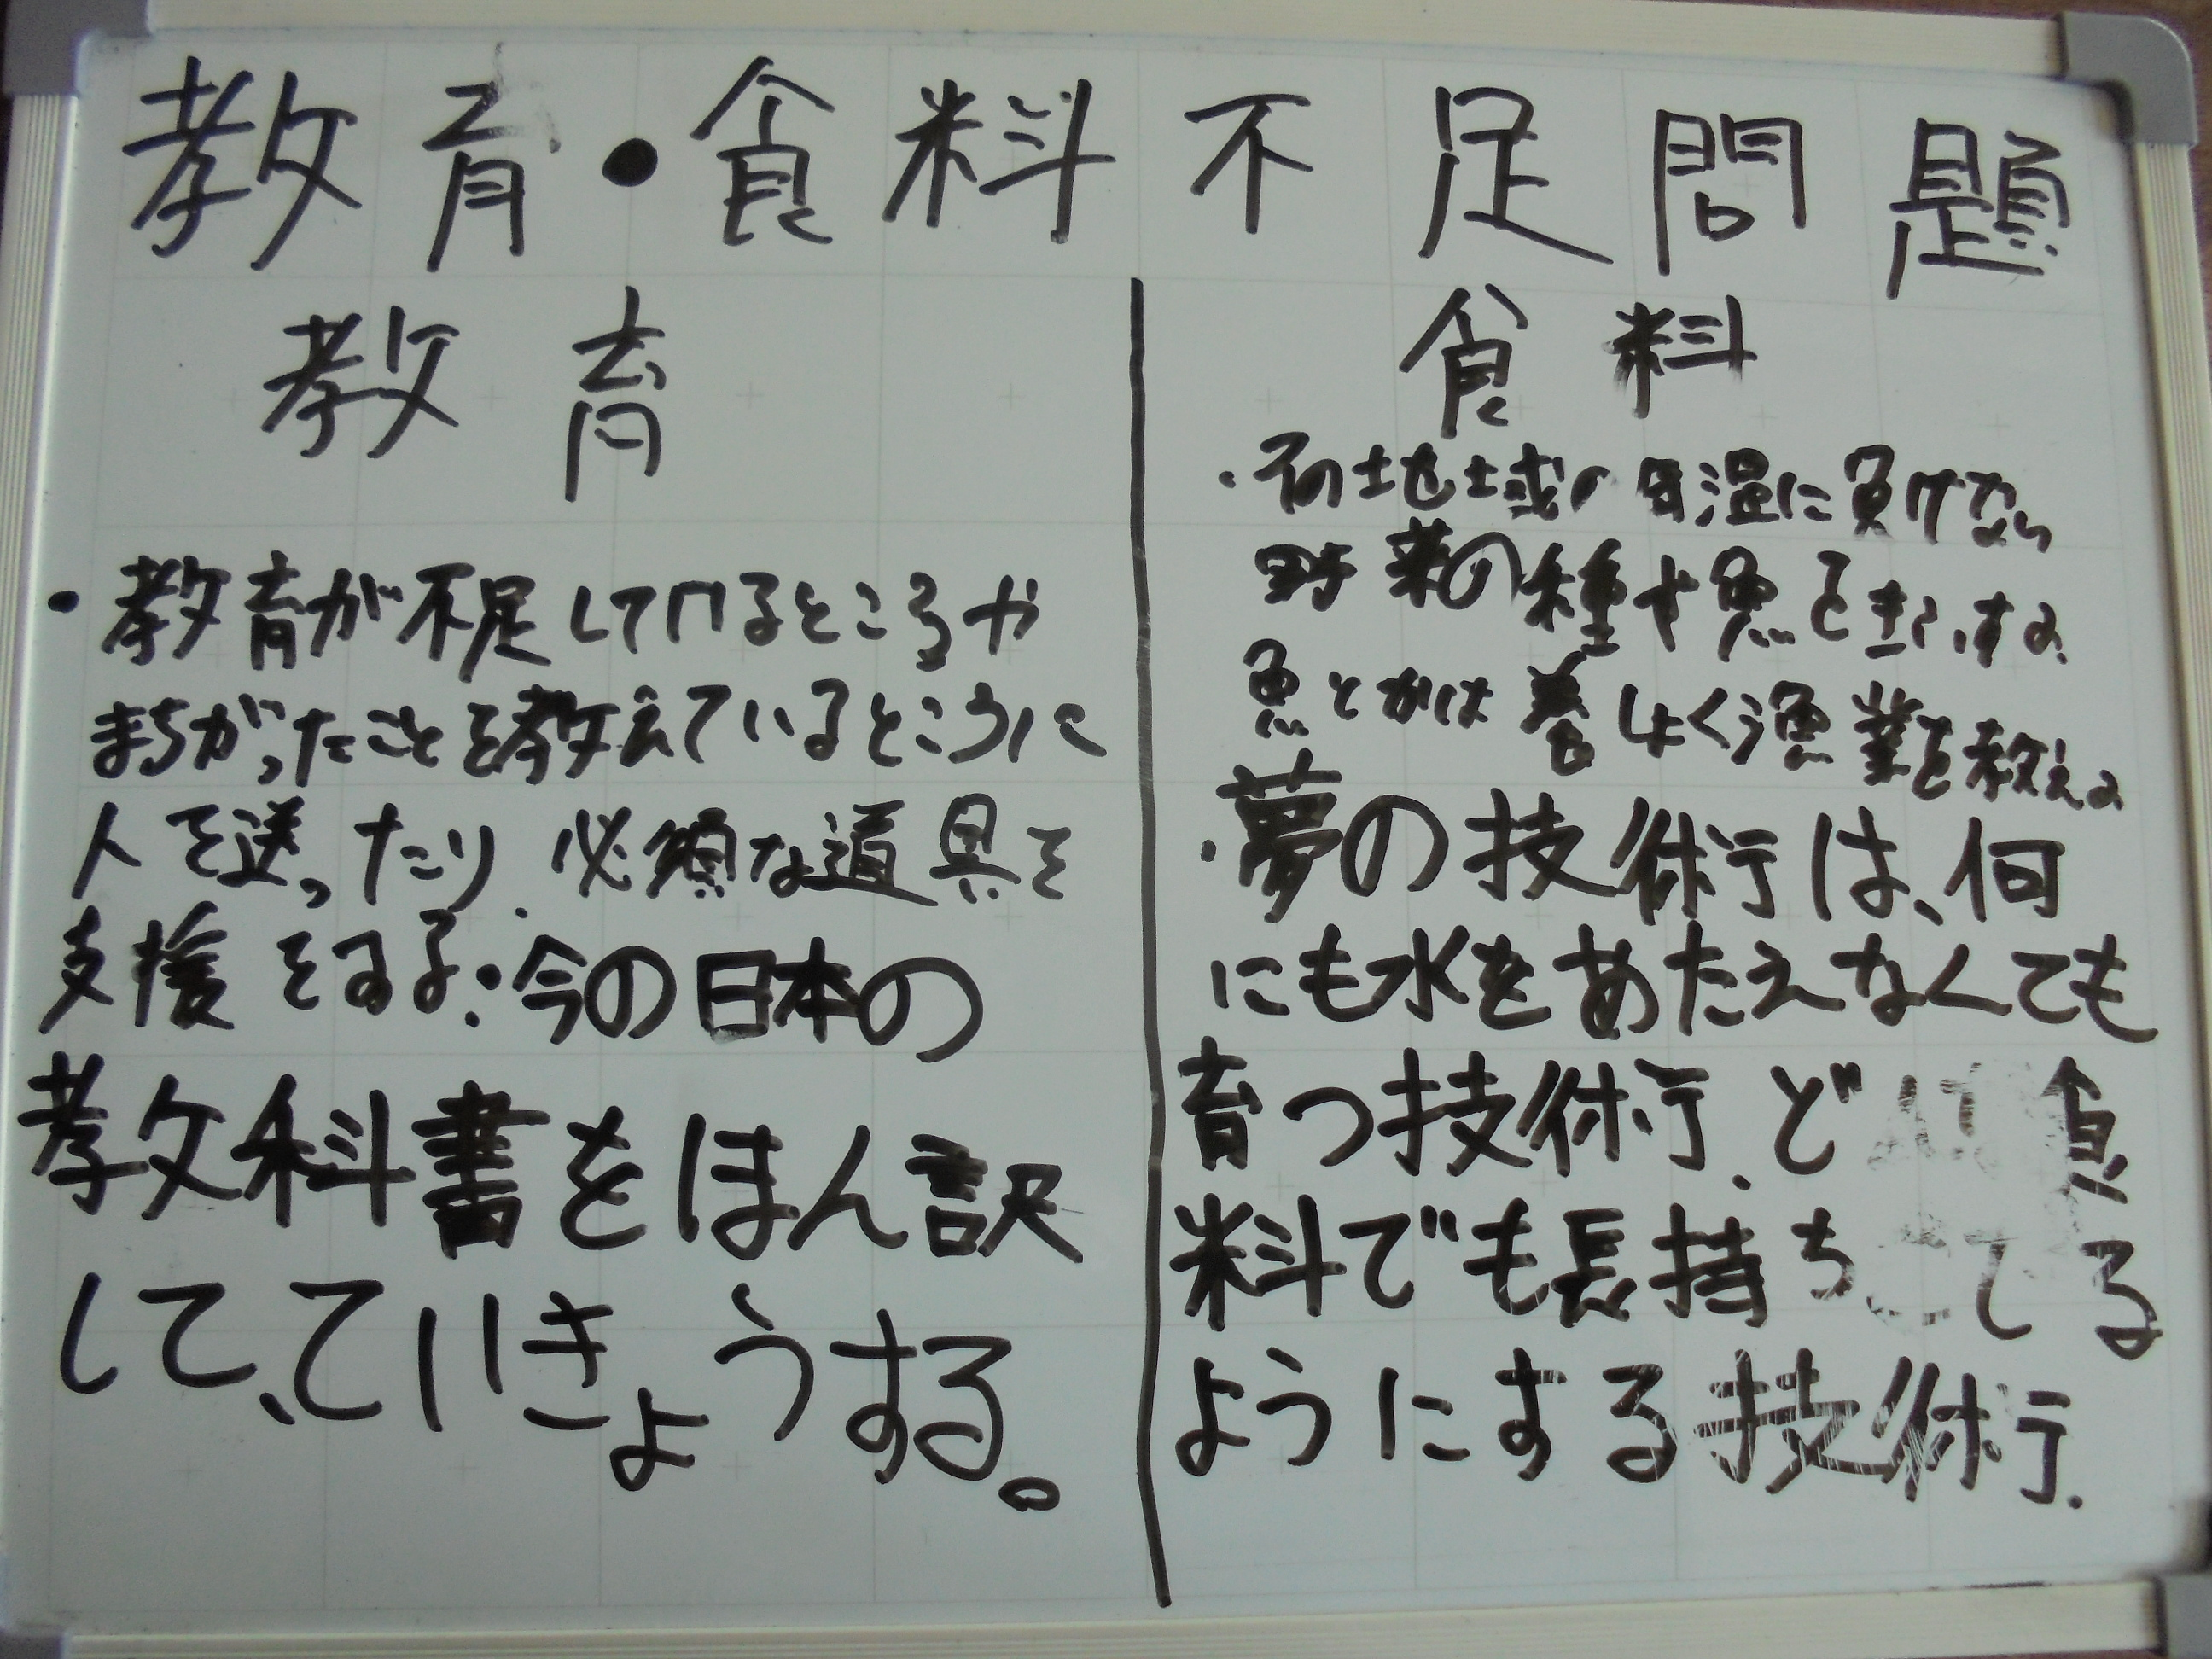 教育・食料不足問題
教育
・教育が不足しているところや
まちがったことを教えているところに
人を送ったり、必須な道具を
支援をする。・今の日本の
教科書をほん訳
して、ていきょうする。
食料
・その地域の気温に負けない
野菜の種や魚を
魚とかは養しょく漁業を教える
・夢の技術は、何
にも水をあたえなくても
育つ技術、ど 食
料でも長持ち てる
ようにする技術。